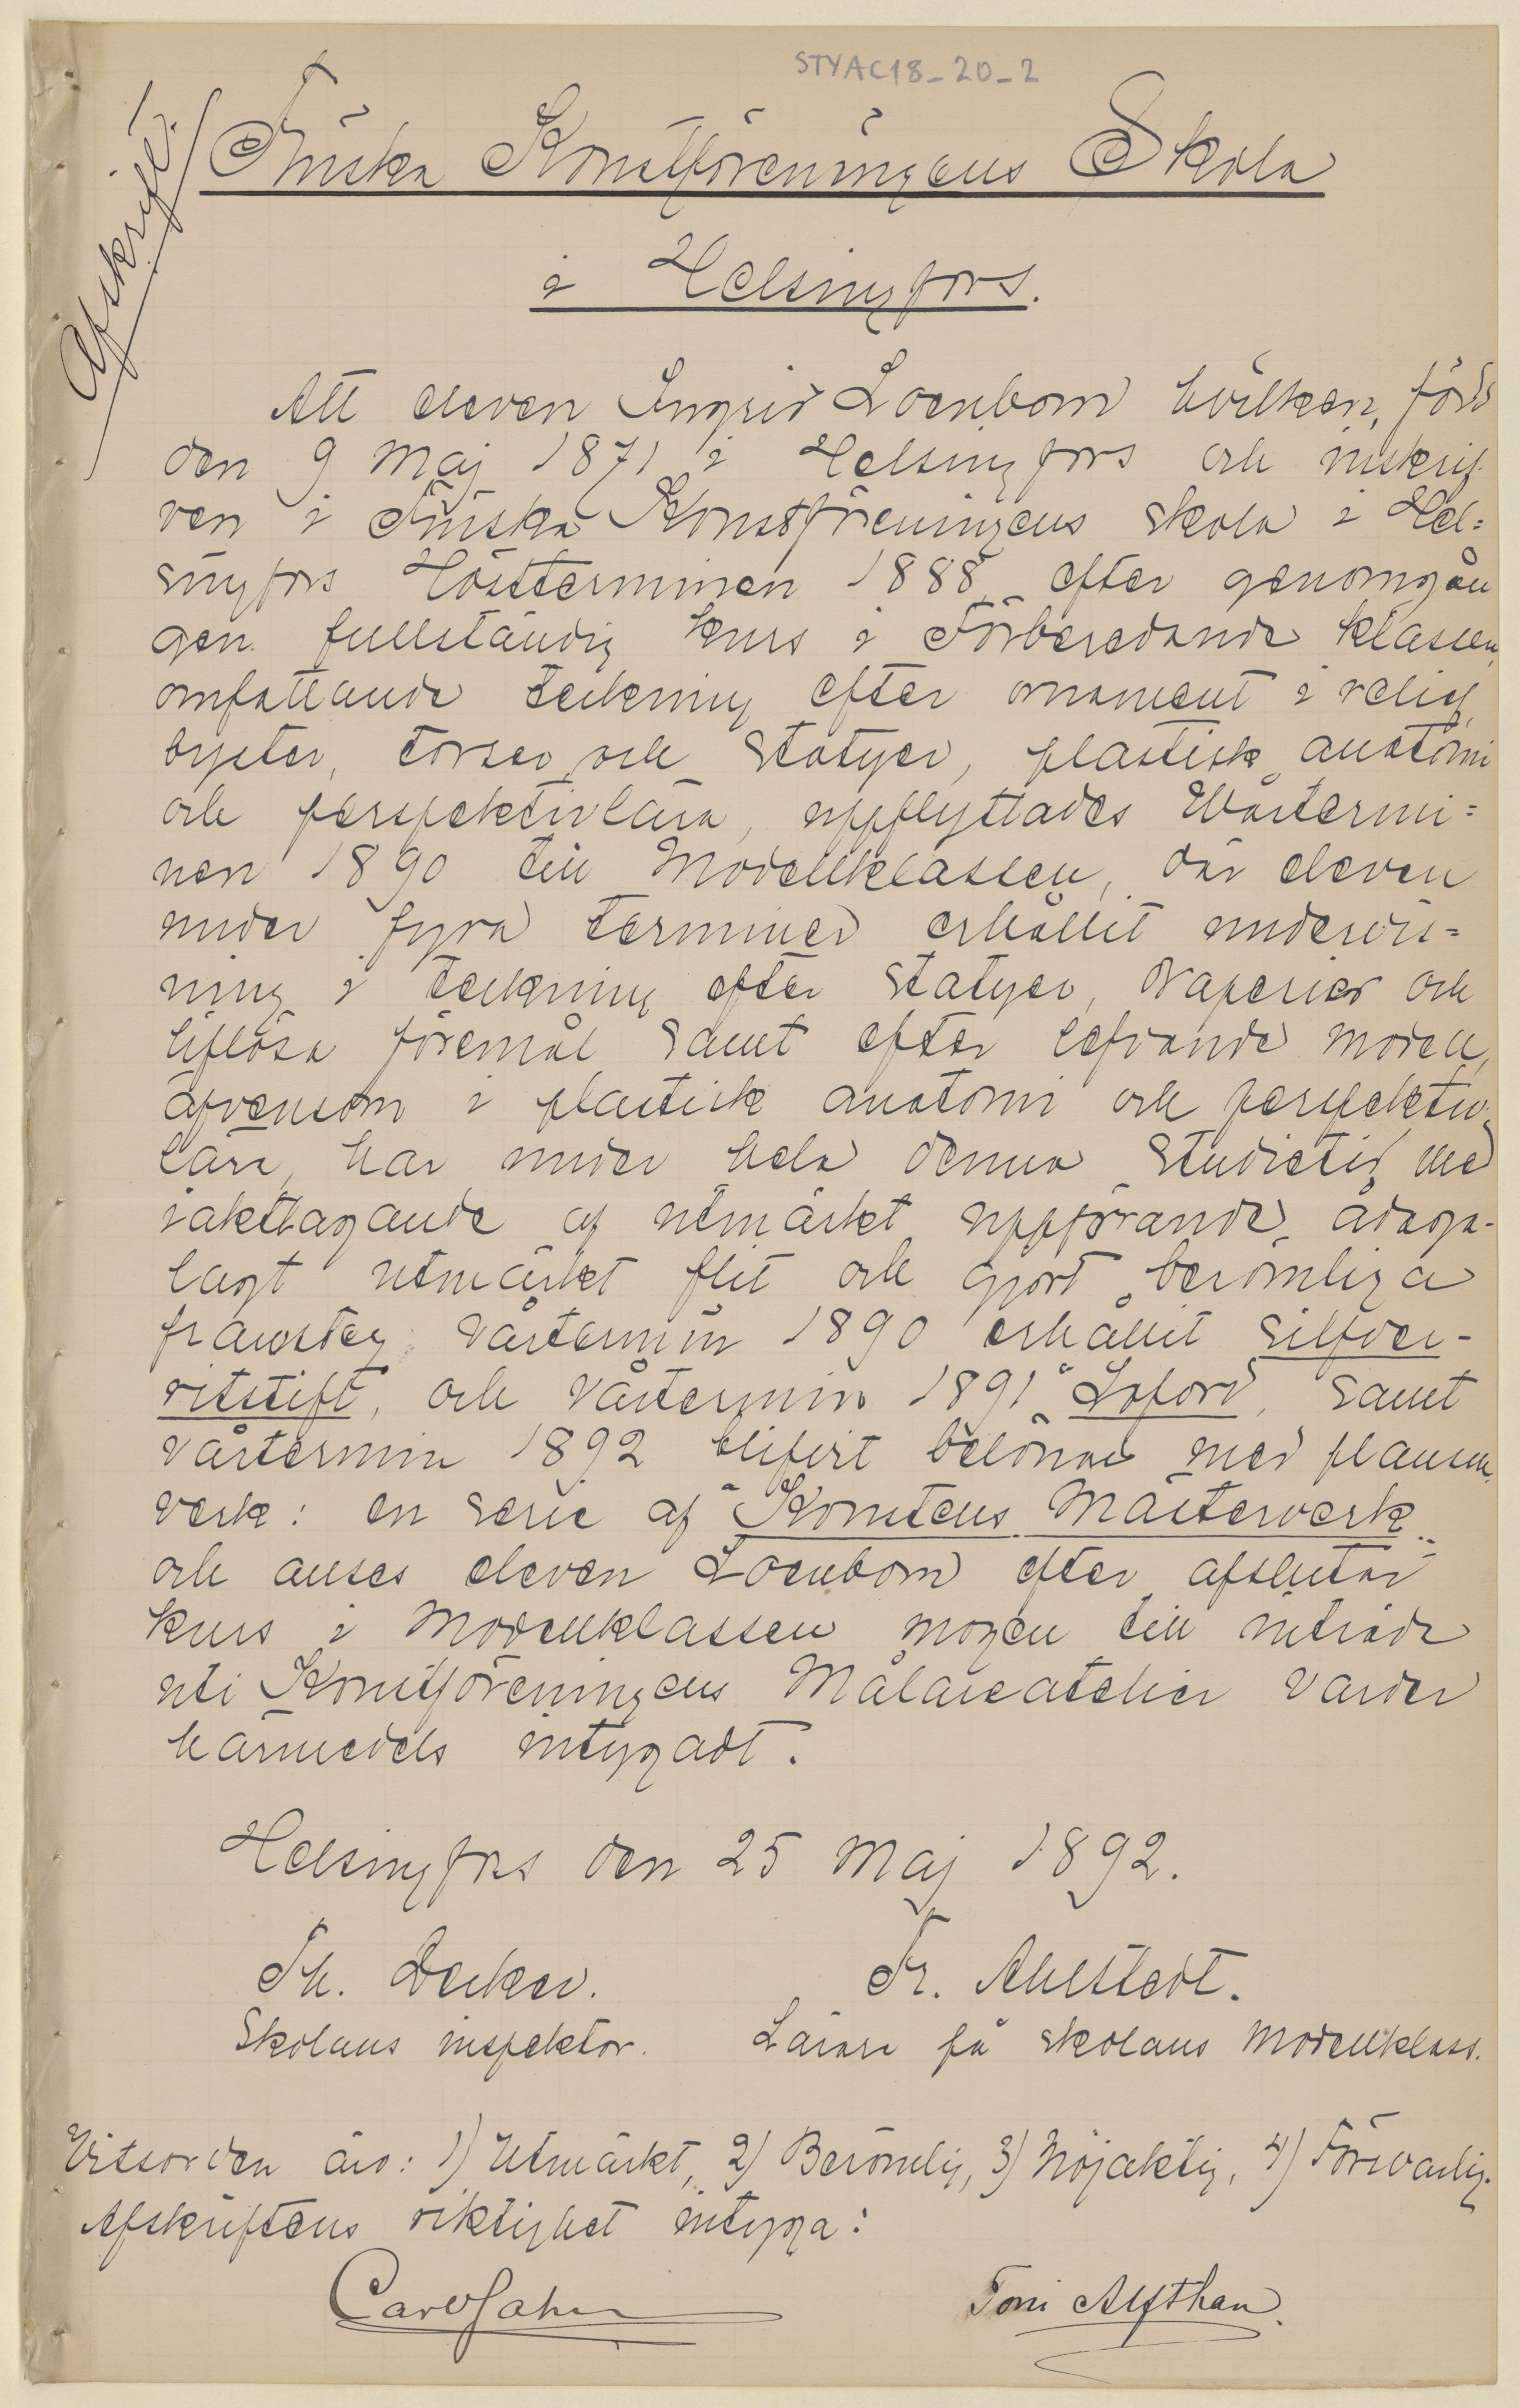 STYAC18_20_2
Afskrift.
Finska Konstföreningens Skola
i Helsingfors.
Att eleven Ingrid Loenbom hvilken, född
den 9 Maj 1871 i Helsingfors och inskrif-
ven i Finska Konstföreningens skola i Hel=
singfors Höstterminen 1888, efter genomgån
gen fullständig kurs i Förberedande klassen,
omfattande teckning efter ornament i relief,
byster, torser och statyer, plastisk anatomi
och perspektivlära, uppflyttades Vårtermi=
nen 1890 till Modellklassen, där eleven
under fyra terminer erhållit undervis=
ning i teckning efter statyer, draperier och
liflösa föremål samt efter lefvande modell,
äfvensom i plastisk anatomi och perspektiv-
lära, har under hela denna studietid med
iakttagande af utmärkt uppförande, ådaga-
lagt utmärkt flit och gjort berömliga
framsteg, vårtermin 1890 erhållit silfver-
ritstift, och vårtermin 1891 "Loford", samt
vårtermin 1892 blifvit belönad med plansch-
verk: en serie af "Konstens Mästerverk"
och anses eleven Loenbom efter afslutad
kurs i Modellklassen mogen till inträde
uti Konstföreningens Målareatelier varder
härmedels intygadt.
Helsingfors den 25 Maj 1892.
Th. Decker. Fr. Ahlstedt.
Skolans inspektor. Lärare på skolans Modellklass.
Vitsorden äro: 1) Utmärkt, 2) Berömlig, 3) Nöjaktig, 4) Försvarlig.
Afskriftens riktighet intyga:
Carl Jahn Toni Alfthan